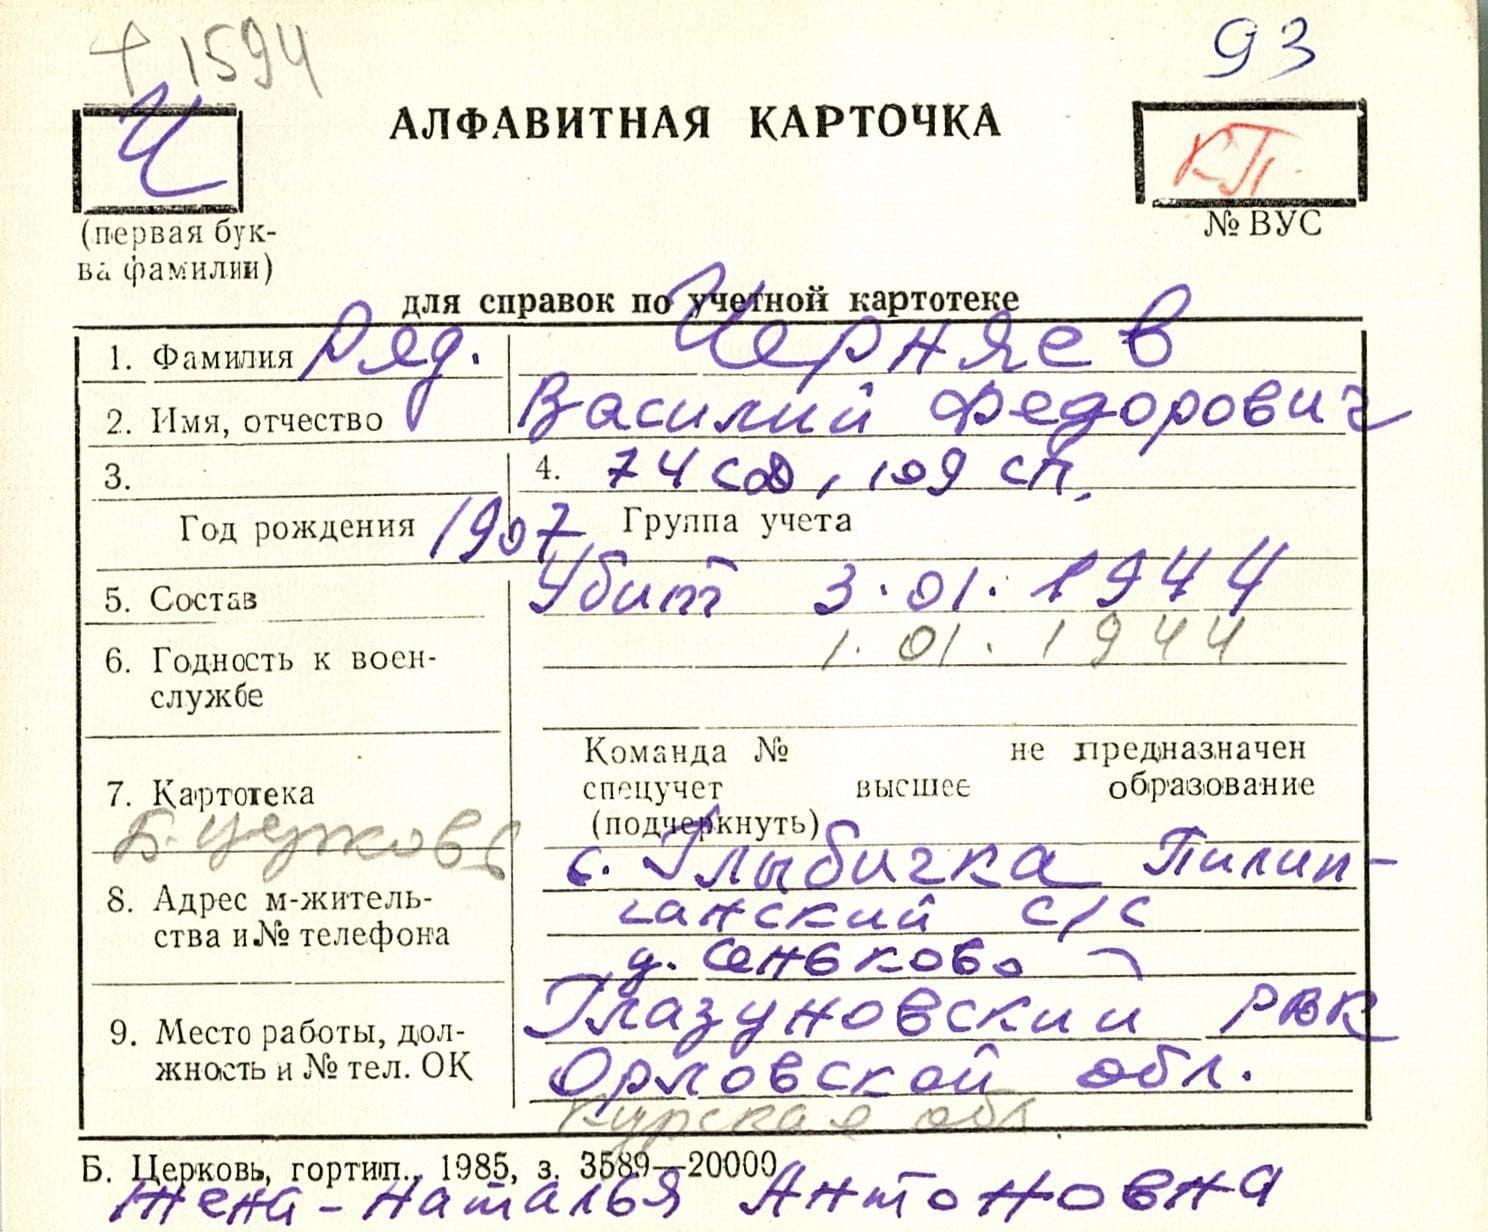 † 1594
93
Ч
АЛФАВИТНАЯ КАРТОЧКА
КП.
(первая бук-
ва фамилии)
№ ВУС
для справок по учетной картотеке
1. Фамилия Ряд. Черняев
2. Имя, отчество Василий Федорович
3. 4. 74 сд, 109 сп.
Год рождения 1907 Группа учета
5. Состав Убит 3.01.1944
1.01.1944
6. Годность к воен-
службе
Команда № не предназначен
7. Картотека спецучет высшее образование
(подчеркнуть)
Б. Церковь
с. Глыбичка Пилип-
8. Адрес м-житель-
ства и № телефона
чанский с/с
д. Сеньково
9. Место работы, дол-
жность и № тел. ОК
Глазуновский РВК
Орловской обл.
Курская обл
Б. Церковь, гортип., 1985, з. 3589—20000
Жена - Наталья Антоновна